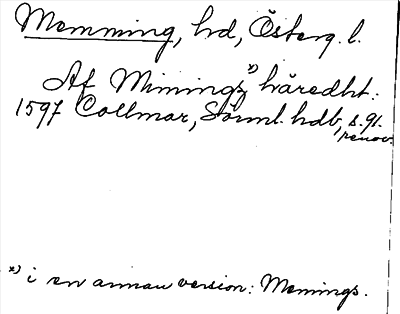 Memming, hd, Österg. l.
Af Minings *) häredht:
1597 Collmar, Sörml. hdb, s. 91.
renov.
*) i en annan version: Memings.